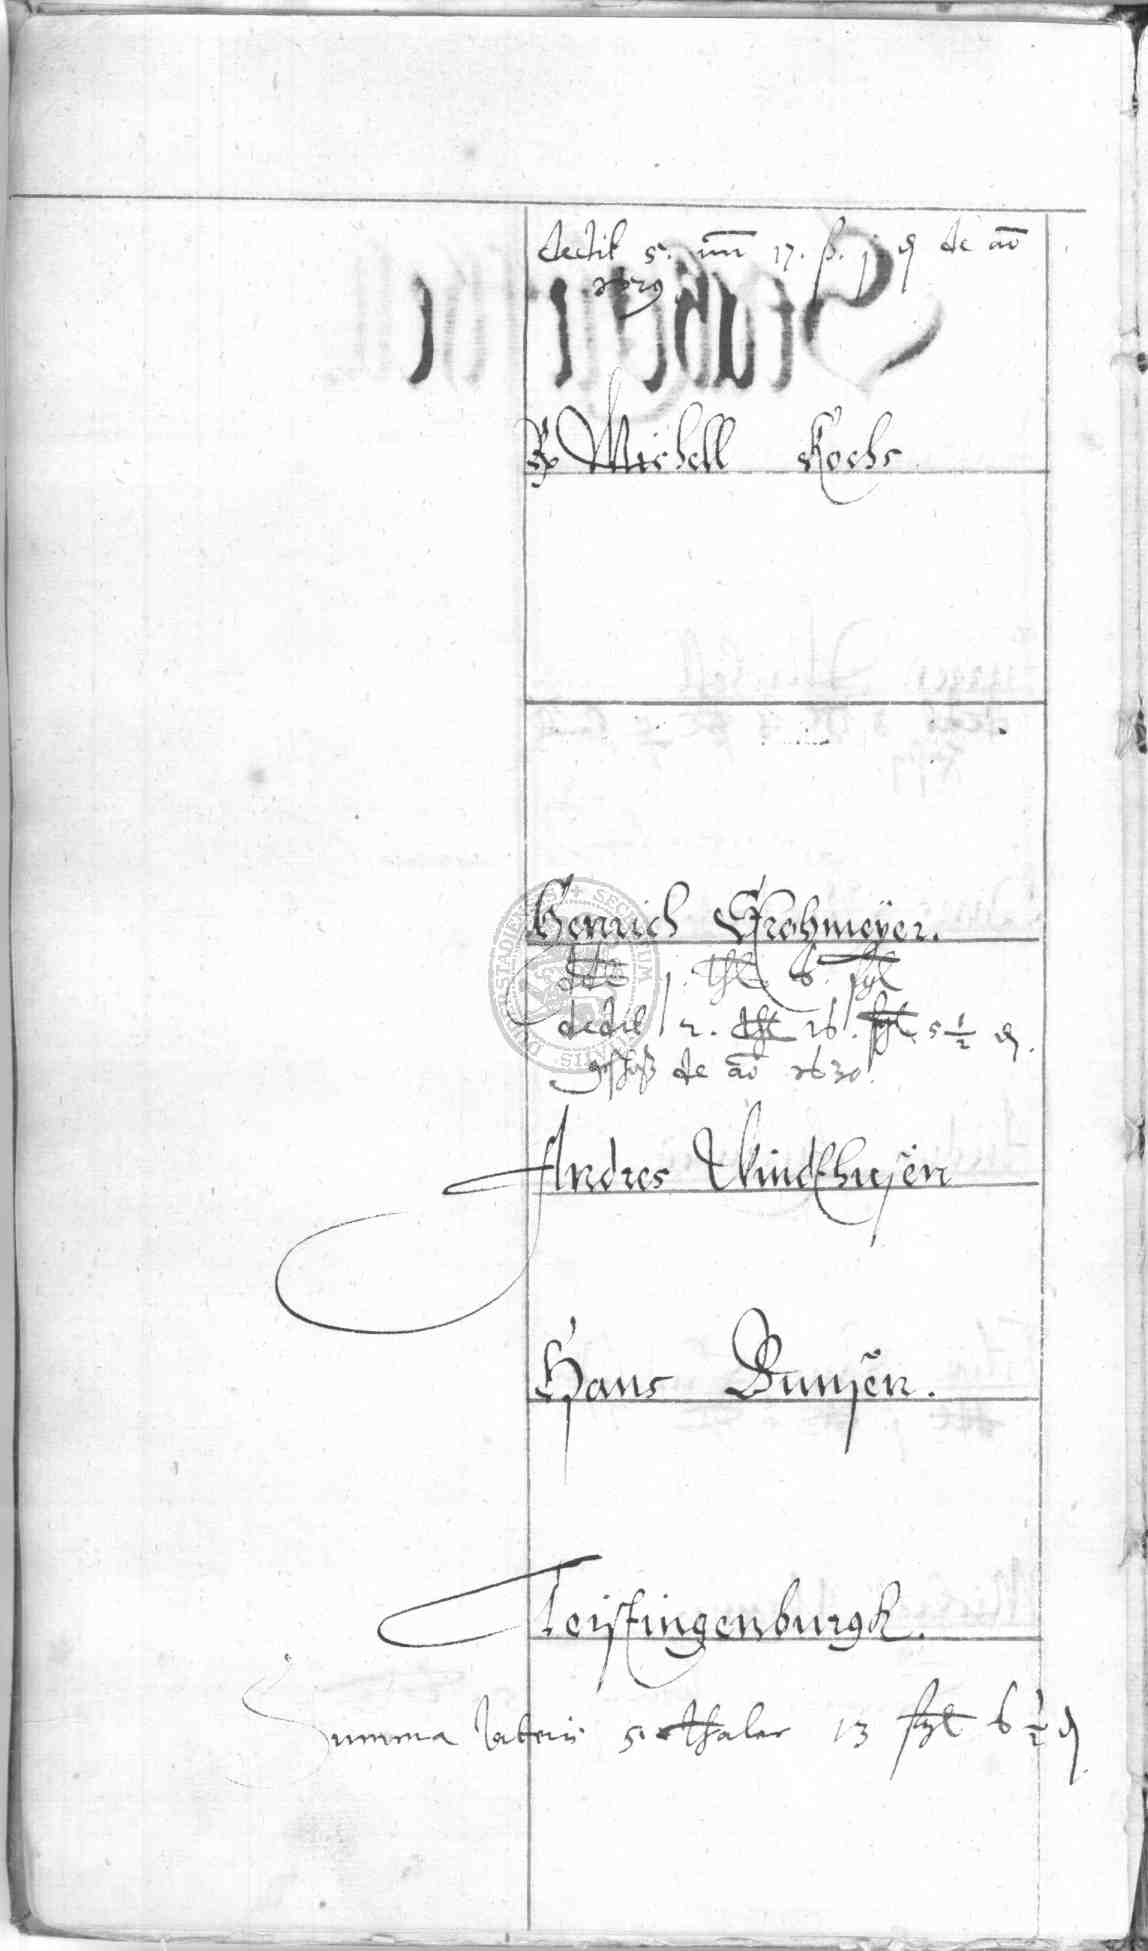 dedit 5. mr 17. ß. j ₰ de ao
1629
Michell Kochs
Henrich Grohmeyer.
dt 1. thl. 6. sgl
dedit 2. thl 16. sgl. 5 1/2 ₰.
geschoß de ao 1630.
Andres Windthusen
Hans Bunsen.
Teistingenburgk.
Summa lateris 5. thaler 13 sgl 6 1/2 ₰